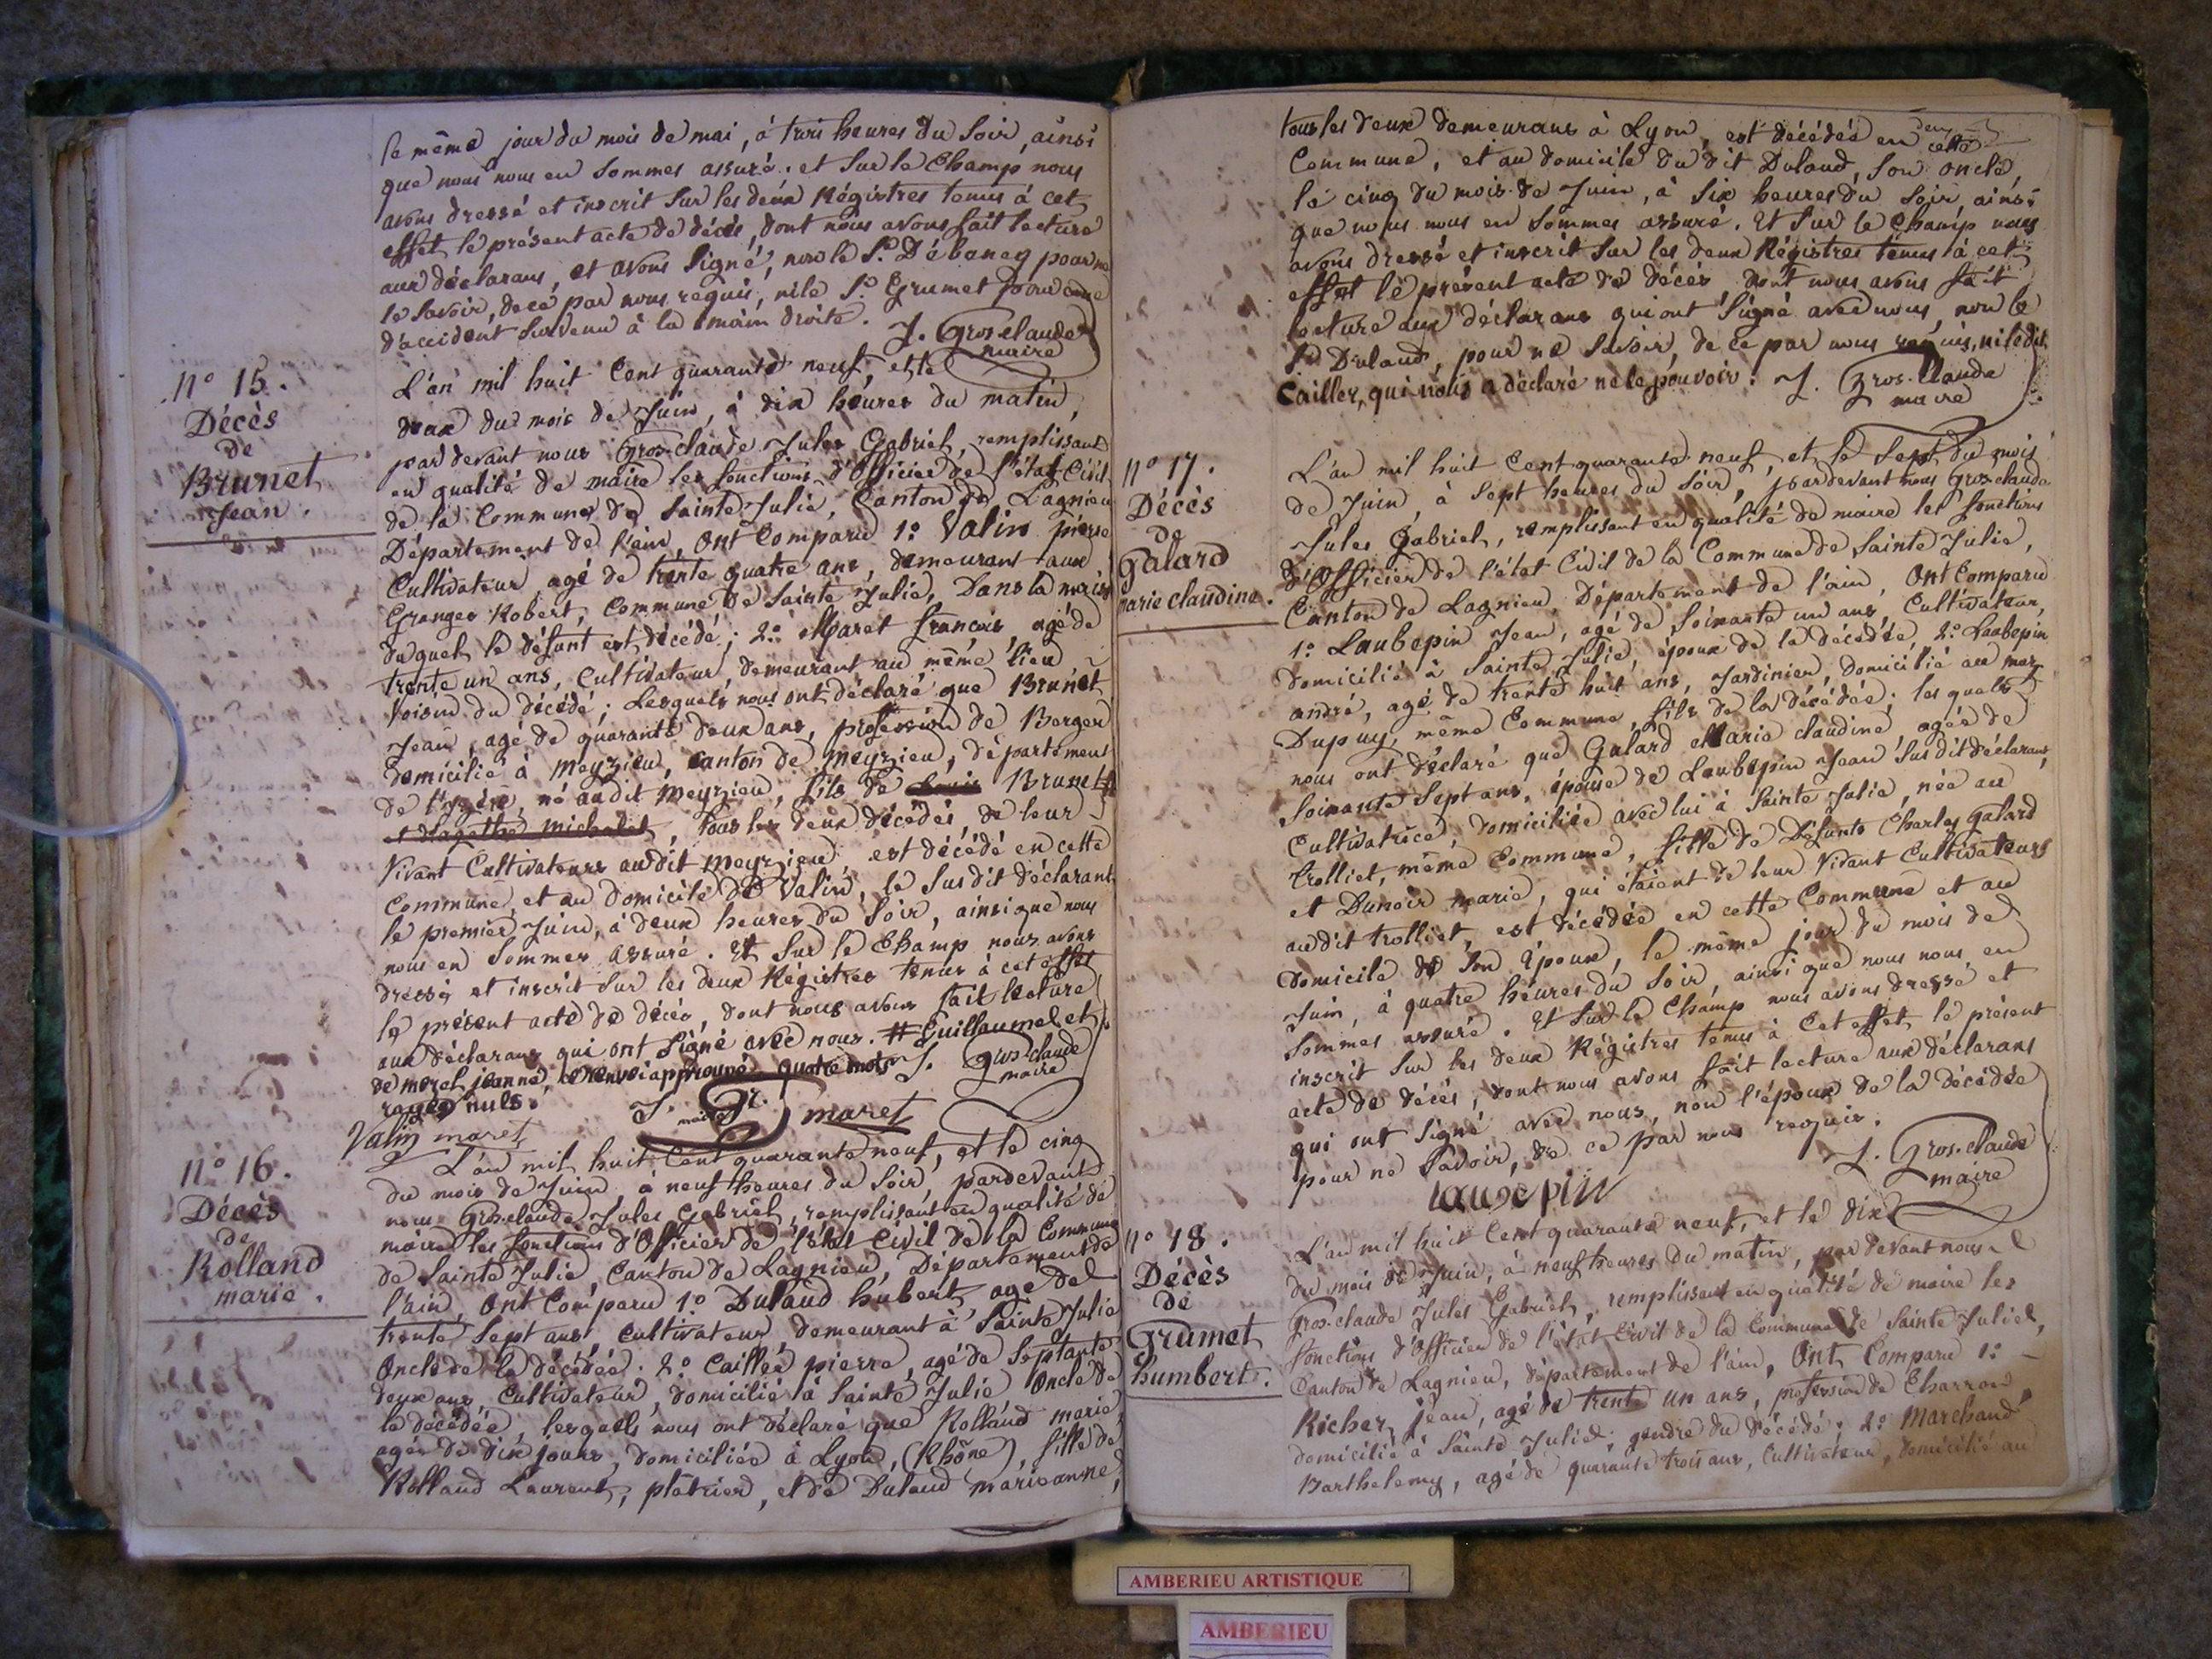 le même jour du mois de mai, à trois heures du soir, ainsi
que nous nous en sommes assuré. et sur le champ nous
avons dressé et inscrit sur les deux Régistres tenus à cet
effet le présent acte de décès, dont nous avons fait lecture
aux déclarans, et avons signé, non le Sr. Débaney pour ne
le savoir, de ce par nous requis, ni le Sr. Grumet pour cause
d'accident survenu à la main droite. J. Gros-claude
maire
n° 15.
Décès
de
Brunet
Jean.
L'an mil huit cent quarante neuf, et le
deux du mois de Juin, à dix heures du matin,
par devant nous Gros-claude Jules Gabriel, remplissant
en qualité de maire les fonctions d'Officier de l'état Civil
de la Commune de Sainte Julie, Canton de Lagnieu
Département de l'ain, Ont Comparu 1.° Valin pierre
Cultivateur, agé de trente quatre ans, demeurant aux
Granges Robert, Commune de Sainte Julie, Dans la maison
duquel le défunt est décédé; 2.° Maret françois, agé de
trente un ans, Cultivateur, demeurant au même lieu
voisin du décédé; Lesquels nous ont déclaré que Brunet
Jean, agé de quarante deux ans, profession de Berger
domicilié à Meyzieu, canton de Meyzieu, département
de l'yzère, né audit Meyzieu, fils de Brunet #
michalet, tous les deux décédés, de leur
vivant Cultivateurs audit Meyzieu, est décédé en cette
Commune, et au domicile de Valin, le susdit déclarant
le premier Juin, à deux heures du soir, ainsi que nous
nous en sommes assuré. Et sur le champ nous avons
dressé et inscrit sur les deux Régistres tenus à cet effet
le présent acte de décès, dont nous avons fait lecture
aux déclarans qui ont signé avec nous. # Guillaume et
de morel jeanne, renvoi approuvé quatre mots J. Gros-claude
rayés nuls. maire
Valin maret J. maret
n° 16.
Décès
de
Rolland
marie.
L'an mil huit cent quarante neuf, et le cinq
du mois de Juin, à neuf heures du soir, pardevant
nous Gros-claude Jules Gabriel, remplissant en qualité de
maire les fonctions d'Officier de l'état Civil de la Commune
de Sainte Julie, Canton de Lagnieu, Département de
l'ain, Ont Comparu 1.° Dulaud hubert, age de
trente sept ans, cultivateur, demeurant à Sainte Julie
Oncle de la décédée. 2.° Cailler pierre, agé de septante
deux ans, Cultivateur, domicilié à Sainte Julie Oncle de
la décédée, lesquels nous ont déclaré que Rolland marie,
agée de dix jours, domiciliée à Lyon, (Rhône), fille de
Rolland Laurent, platrier, et de Dulaud marie anne,
tous les deux demeurans à Lyon, est décédée en cette
Commune, et au domicile du dit Dulaud, son oncle,
le cinq du mois de Juin, à six heures du soir, ainsi
que nous nous en sommes assuré. Et sur le champ nous
avons dressé et inscrit sur les deux Régistres tenus à cet
effet le présent acte de décès, dont nous avons fait
lecture aux déclarans qui ont signé avec nous, non le
Sr. Dulaud, pour ne savoir, de ce par nous requis, ni le dit
Cailler, qui nous a déclaré ne le pouvoir. J. Gros-claude
maire
n° 17.
Décès
de
Galard
marie claudine.
L'an mil huit cent quarante neuf, et le sept du mois
de Juin, à sept heures du soir, pardevant nous Gros-claude
Jules Gabriel, remplissant en qualité de maire les fonctions
d'Officier de l'état Civil de la Commune de Sainte Julie,
Canton de Lagnieu, Département de l'ain, Ont Comparu
1.° Laubepin Jean, agé de soixante un ans, Cultivateur,
domicilié à Sainte Julie, époux de la décédée, 2.° Laubepin
andré, agé de trente huit ans, Jardinier, domicilié au mas
Dupuy, même Commune, fils de la décédée; les quels
nous ont déclaré que Galard Marie claudine, agée de
soixante sept ans, épouse de Laubepin Jean susdit déclarant,
Cultivatrice, domiciliée avec lui à Sainte Julie, née au
trolliet, même Commune, fille de défunts Charles galard
et Dunoir marie, qui étaient de leur vivant Cultivateurs
audit trolliet, est décédée en cette Commune et au
domicile de son Epoux, le même jour du mois de
Juin, à quatre heures du soir, ainsi que nous nous en
sommes assuré. Et sur le champ nous avons dressé et
inscrit sur les deux Régistres tenus à cet effet le présent
acte de décès, dont nous avons fait lecture aux déclarans
qui ont signé avec nous, non l'époux de la décédée
pour ne savoir, de ce par nous requis.
Laubepin J. Gros-claude
maire
n° 18.
Décès
de
Grumet
humbert.
L'an mil huit cent quarante neuf, et le dix
du mois de Juin, à neuf heures du matin, par devant nous
Gros-claude Jules Gabriel, remplissant en qualité de maire les
fonctions d'Officier de l'état Civil de la Commune de Sainte Julie,
Canton de Lagnieu, département de l'ain, Ont Comparu 1.°
Richer, jean, agé de trente un ans, profession de Charron,
domicilié à Sainte Julie, gendre du décédé; 2.° Marchand
Barthelemy, agé de quarante trois ans, Cultivateur, domicilié au
AMBERIEU ARTISTIQUE
AMBERIEU